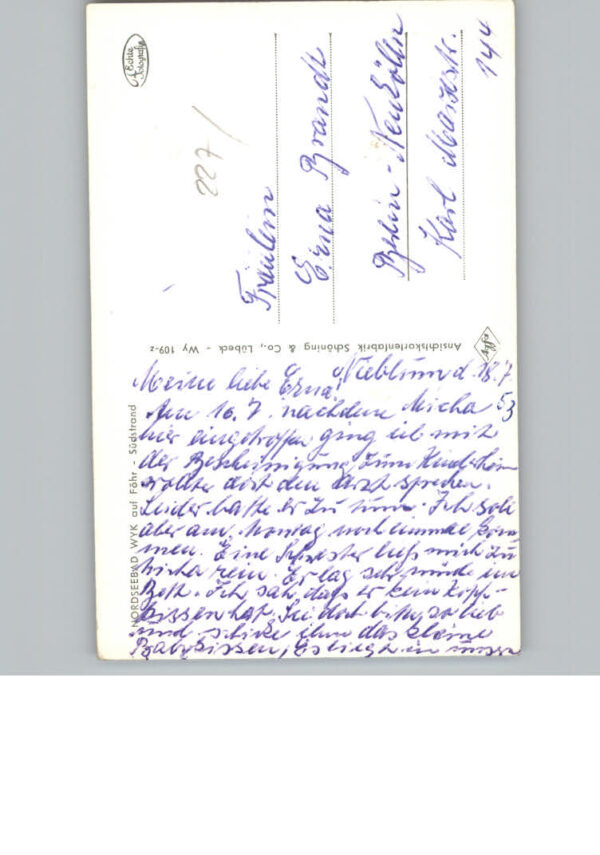 Echte Fotografie
227/
Fräulein
Erna Brandt
Berlin - Neukölln
Karl Marxstr.
144
Ansichtskartenfabrik Schöning & Co., Lübeck - Wy 109-z
NORDSEEBAD WYK auf Föhr - Südstrand
Nieblum d. 18.7.
53
Meine liebe Erna!
Am 16.7. nachdem Micha
hier eingetroffen ging ich mit
der Bescheinigung zum Kinderheim
wollte dort den Arzt sprechen.
Leider hatte er zu tun. Ich soll
aber am Montag noch einmal kom-
men. Eine Schwester ließ mich zu
Micha rein. Er lag sehr müde im
Bett. Ich sah, daß er kein Kopf-
kissen hat. Sei doch bitte so lieb
und schicke ihm das kleine
Babykissen, es liegt in